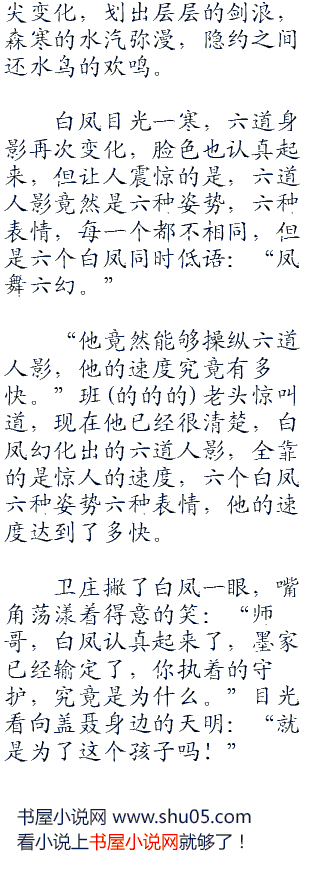 尖变化，划出层层的剑浪，
森寒的水汽弥漫，隐约之间
还水鸟的欢鸣。
白凤目光一寒，六道身
影再次变化，脸色也认真起
来，但让人震惊的是，六道
人影竟然是六种姿势，六种
表情，每一个都不相同，但
是六个白凤同时低语：“凤
舞六幻。”
“他竟然能够操纵六道
人影，他的速度究竟有多
快。”班(的的的)老头惊叫
道，现在他已经很清楚，白
凤幻化出的六道人影，全靠
的是惊人的速度，六个白凤
六种姿势六种表情，他的速
度达到了多快。
卫庄撇了白凤一眼，嘴
角荡漾着得意的笑：“师
哥，白凤认真起来了，墨家
已经输定了，你执着的守
护，究竟是为什么。”目光
看向盖聂身边的天明：“就
是为了这个孩子吗！”
书屋小说网 www.shu05.com
看小说上书屋小说网就够了！